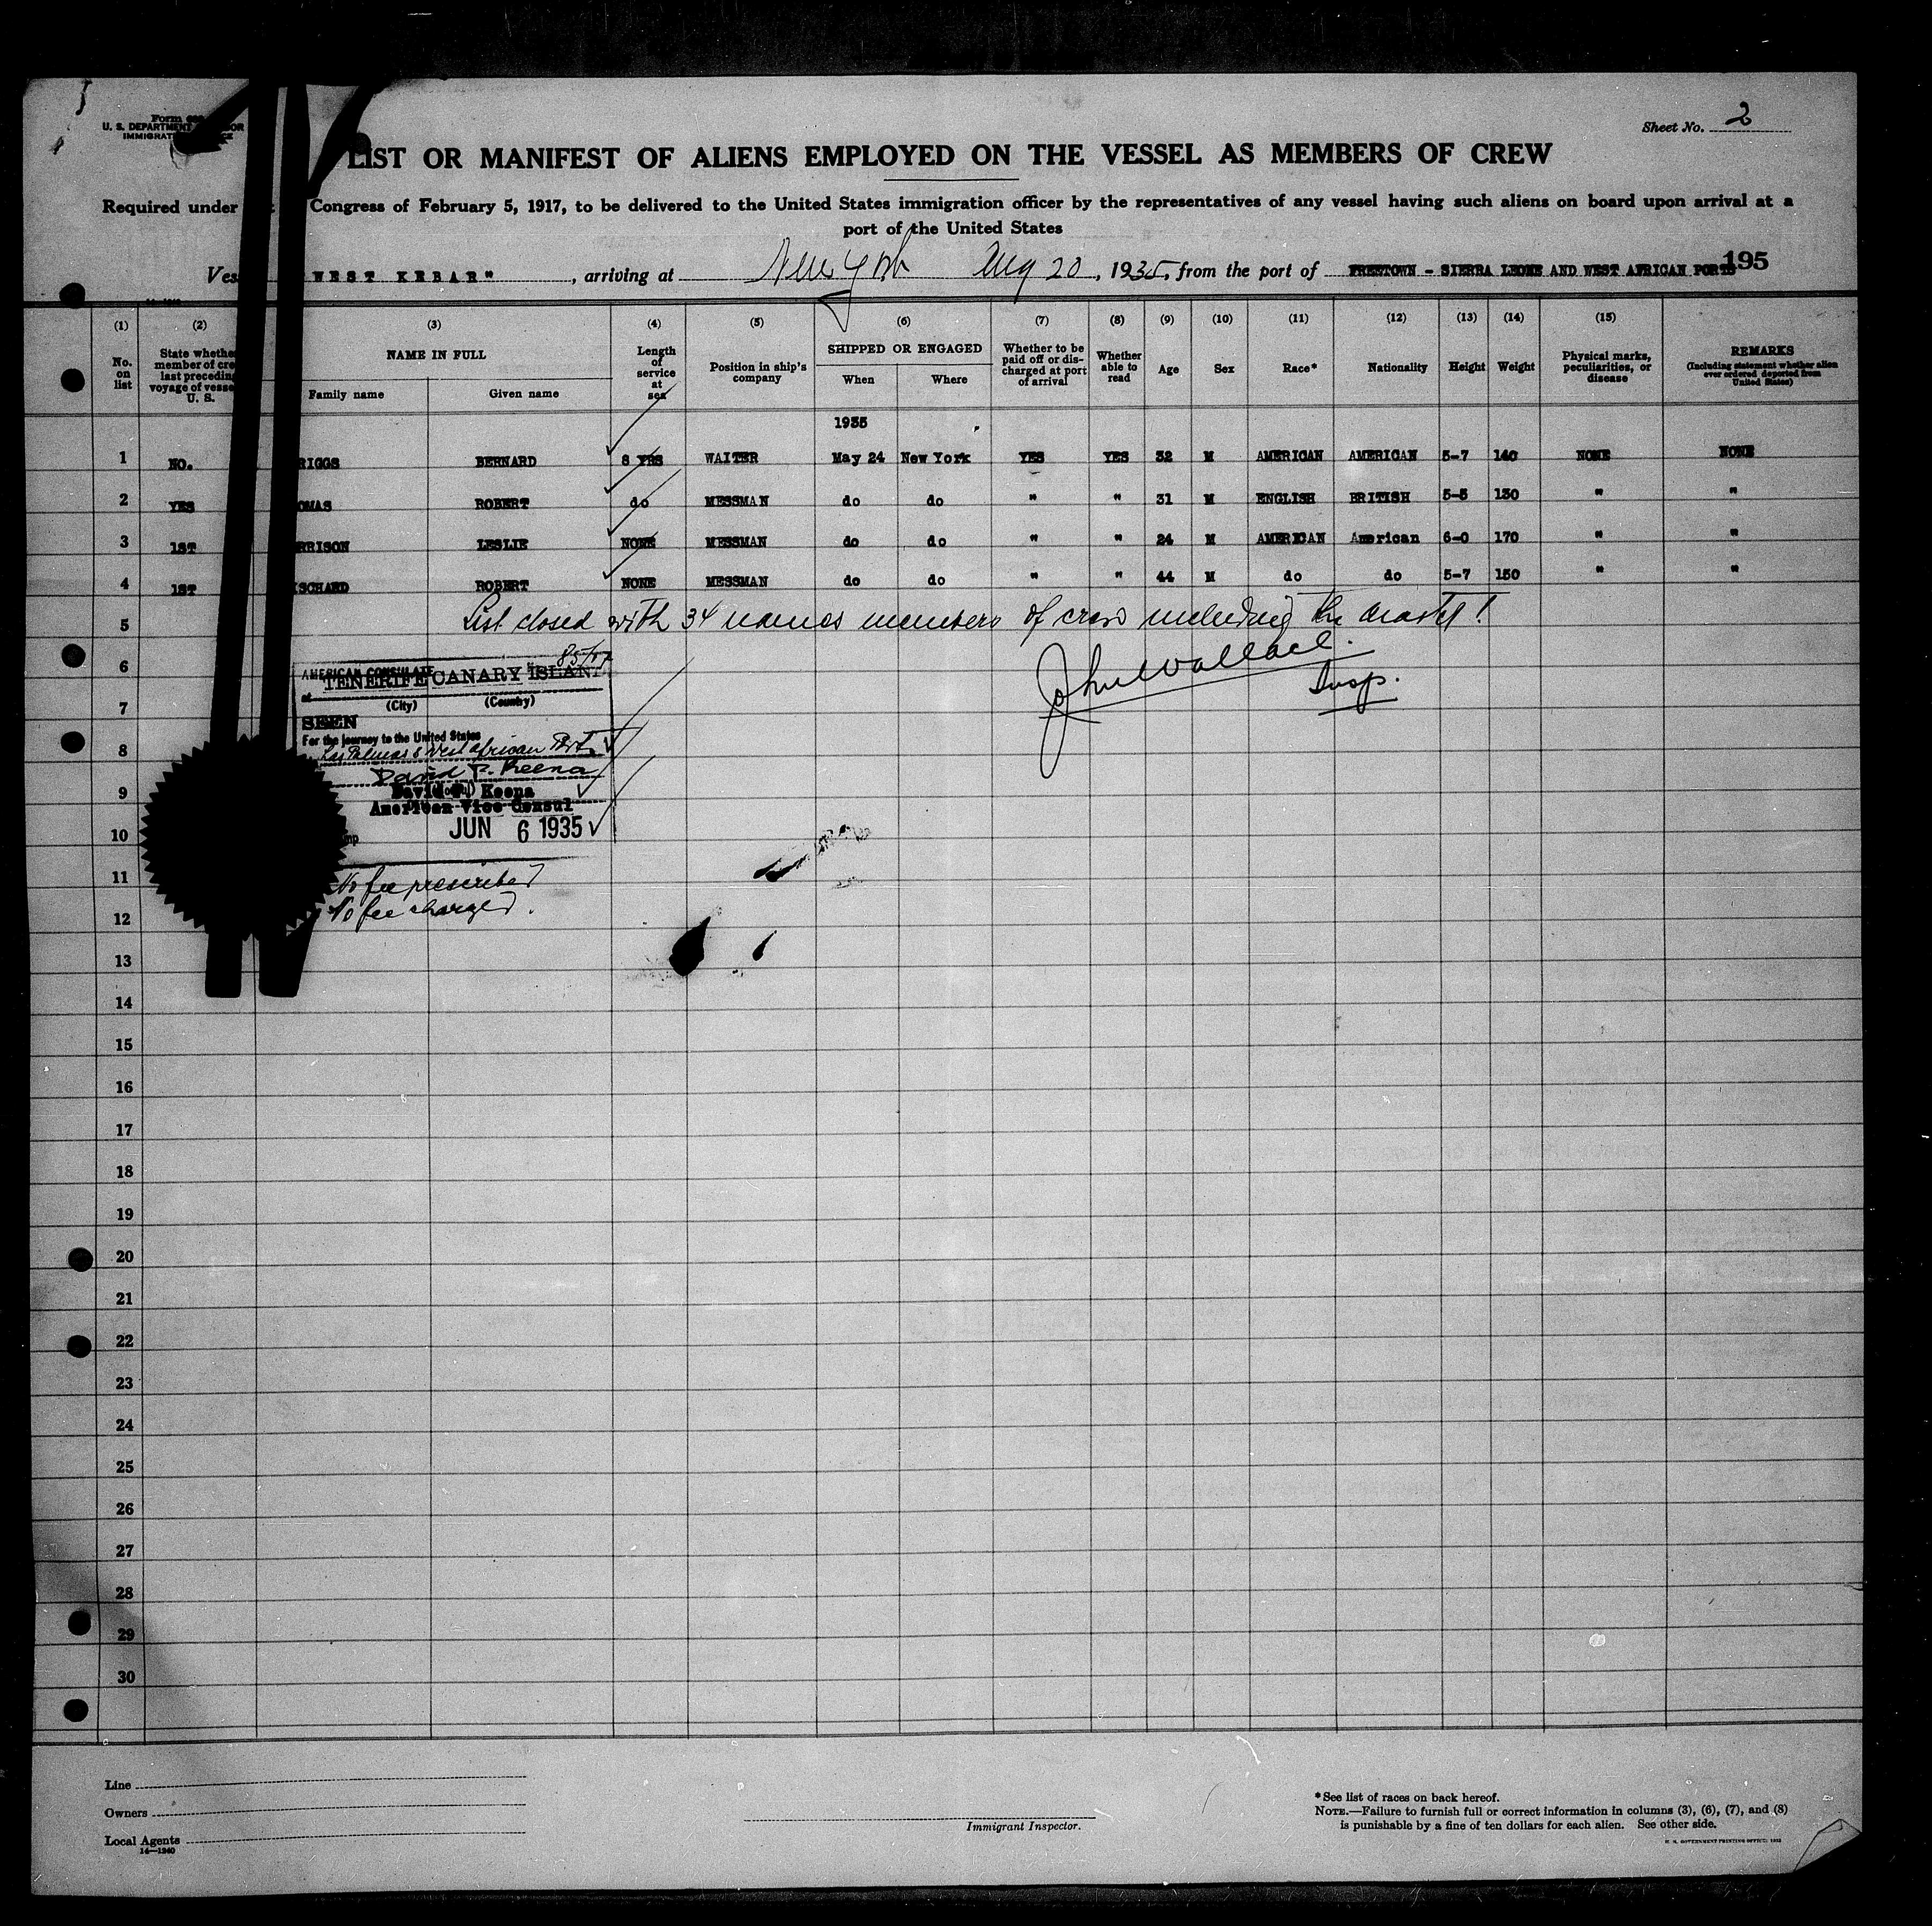 Form
U. S. DEPARTMENT
IMMIGRAT
Sheet No. 2
LIST OR MANIFEST OF ALIENS EMPLOYED ON THE VESSEL AS MEMBERS OF CREW
Required under Congress of February 5, 1917, to be delivered to the United States immigration officer by the representatives of any vessel having such aliens on board upon arrival at a
port of the United States
Ves WEST KEBAR" , arriving at New York Aug 20 , 1935, from the port of FREETOWN - SIERRA LEONE AND WEST AFRICAN PORTS 195
(1) (2) (3) (4) (5) (6) (7) (8) (9) (10) (11) (12) (13) (14) (15)
No. on list
State whether member of crew last preceding voyage of vessel U. S.
NAME IN FULL
Family name Given name
Length of service at sea
Position in ship's company
SHIPPED OR ENGAGED
When Where
Whether to be paid off or discharged at port of arrival
Whether able to read
Age
Sex
Race*
Nationality
Height
Weight
Physical marks, peculiarities, or disease
REMARKS
(Including statement whether alien ever ordered deported from United States)
1935
1 NO. RIGGS BERNARD 8 YRS WAITER May 24 New York YES YES 32 M AMERICAN AMERICAN 5-7 140 NONE NONE
2 YES OMAS ROBERT do MESSMAN do do " " 31 M ENGLISH BRITISH 5-5 130 " "
3 1ST RRISON LESLIE NONE MESSMAN do do " " 24 M AMERICAN American 6-0 170 " "
4 1ST SCHARD ROBERT NONE MESSMAN do do " " 44 M do do 5-7 150 " "
5 List closed with 34 names members of crew including the master!
John Wallace.
Insp.
6
AMERICAN CONSULATE
at TENERIFE CANARY ISLAN
(City) (Country)
7
SEEN
For the journey to the United States
8
Las Palmas & West african Port
David P. Keena
9
David Keena
American Vice Consul
10
JUN 6 1935
11
No fee prescribed
No fee charged.
12
13
14
15
16
17
18
19
20
21
22
23
24
25
26
27
28
29
30
Line
Owners
Local Agents
14—1240
Immigrant Inspector.
*See list of races on back hereof.
NOTE.—Failure to furnish full or correct information in columns (3), (6), (7), and (8)
is punishable by a fine of ten dollars for each alien. See other side.
U. S. GOVERNMENT PRINTING OFFICE: 1932